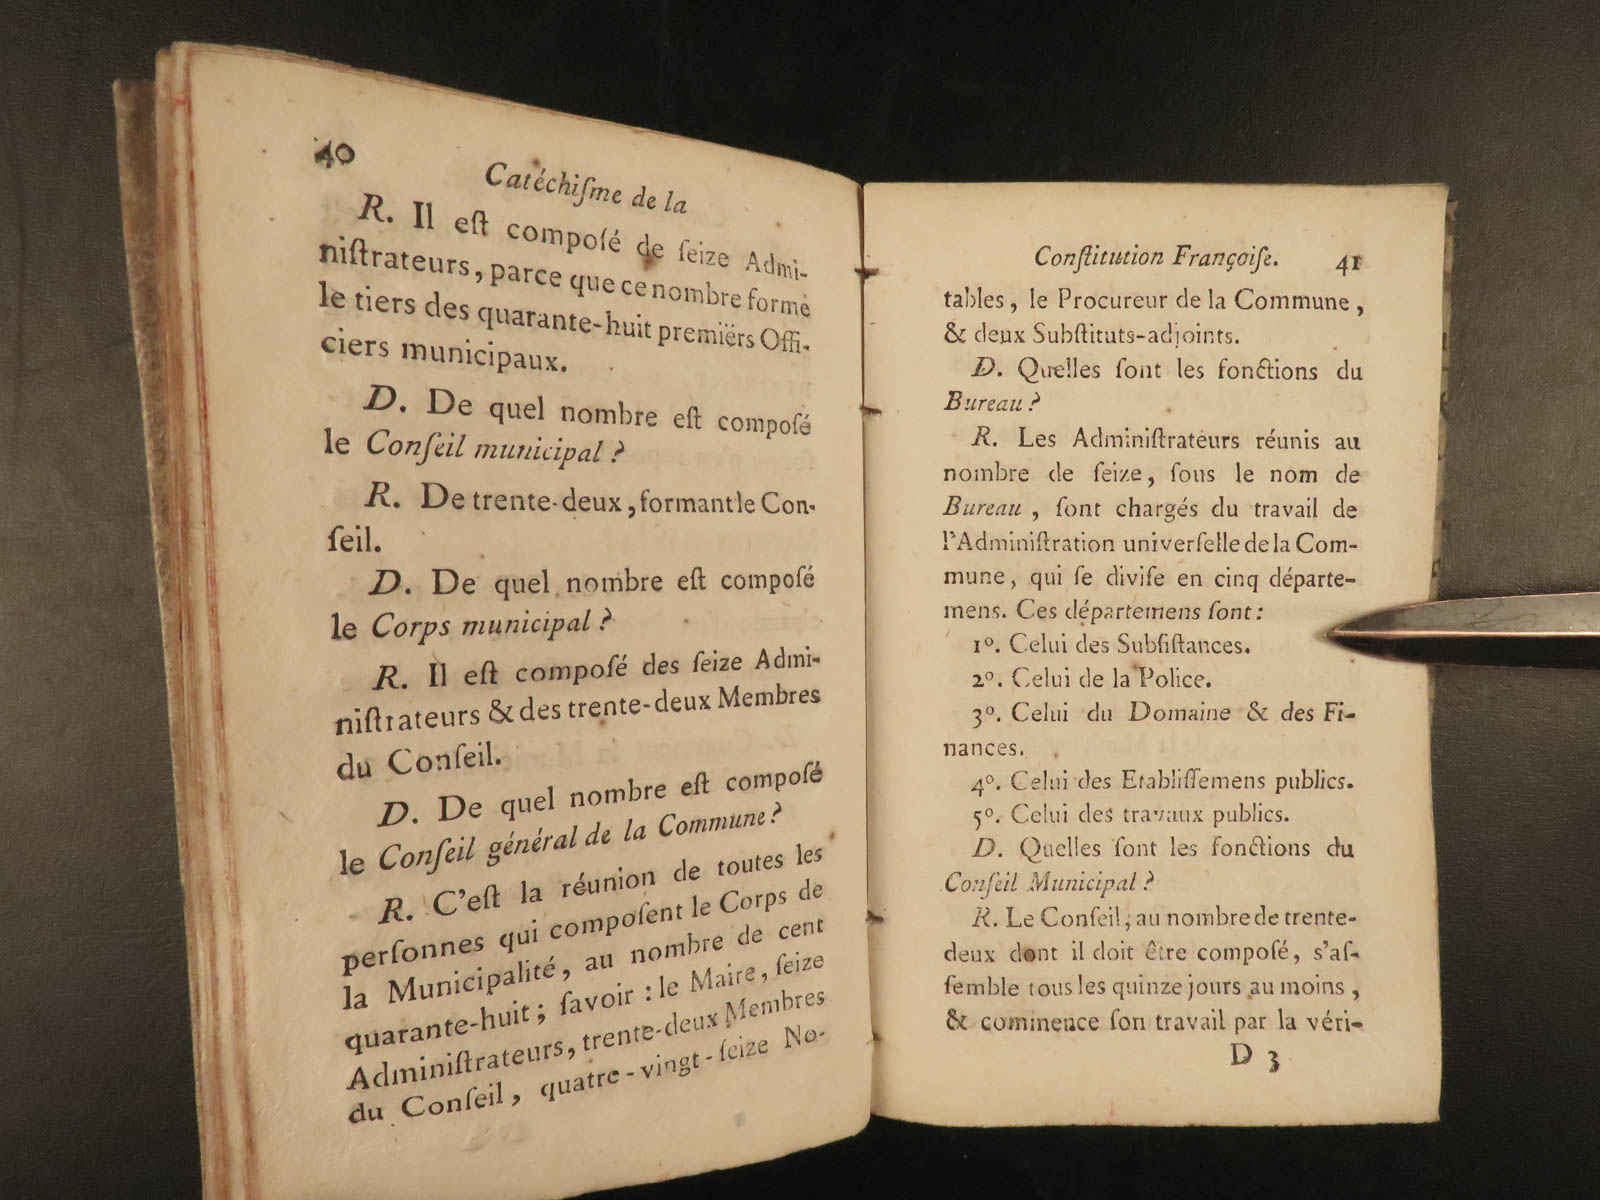 40
Catéchiſme de la
R. Il eſt compoſé de ſeize Admi-
niſtrateurs, parce que ce nombre forme
le tiers des quarante-huit premiërs Offi-
ciers municipaux.
D. De quel nombre eſt compoſé
le Conſeil municipal ?
R. De trente-deux, formant le Con-
ſeil.
D. De quel nombre eſt compoſé
le Corps municipal ?
R. Il eſt compoſé des ſeize Admi-
niſtrateurs & des trente-deux Membres
du Conſeil.
D. De quel nombre eſt compoſé
le Conſeil général de la Commune ?
R. C'eſt la réunion de toutes les
perſonnes qui compoſent le Corps de
la Municipalité, au nombre de cent
quarante-huit ; ſavoir : le Maire, ſeize
Adminiſtrateurs, trente-deux Membres
du Conſeil, quatre-vingt-ſeize No-
Conſtitution Françoiſe. 41
tables, le Procureur de la Commune,
& deux Subſtituts-adjoints.
D. Quelles ſont les fonctions du
Bureau ?
R. Les Adminiſtrateurs réunis au
nombre de ſeize, ſous le nom de
Bureau, ſont chargés du travail de
l'Adminiſtration univerſelle de la Com-
mune, qui ſe diviſe en cinq départe-
mens. Ces départemens ſont :
1º. Celui des Subſiſtances.
2º. Celui de la Police.
3º. Celui du Domaine & des Fi-
nances.
4º. Celui des Etabliſſemens publics.
5º. Celui des travaux publics.
D. Quelles ſont les fonctions du
Conſeil Municipal ?
R. Le Conſeil, au nombre de trente-
deux dont il doit être compoſé, s'aſ-
ſemble tous les quinze jours au moins,
& commence ſon travail par la véri-
D 3